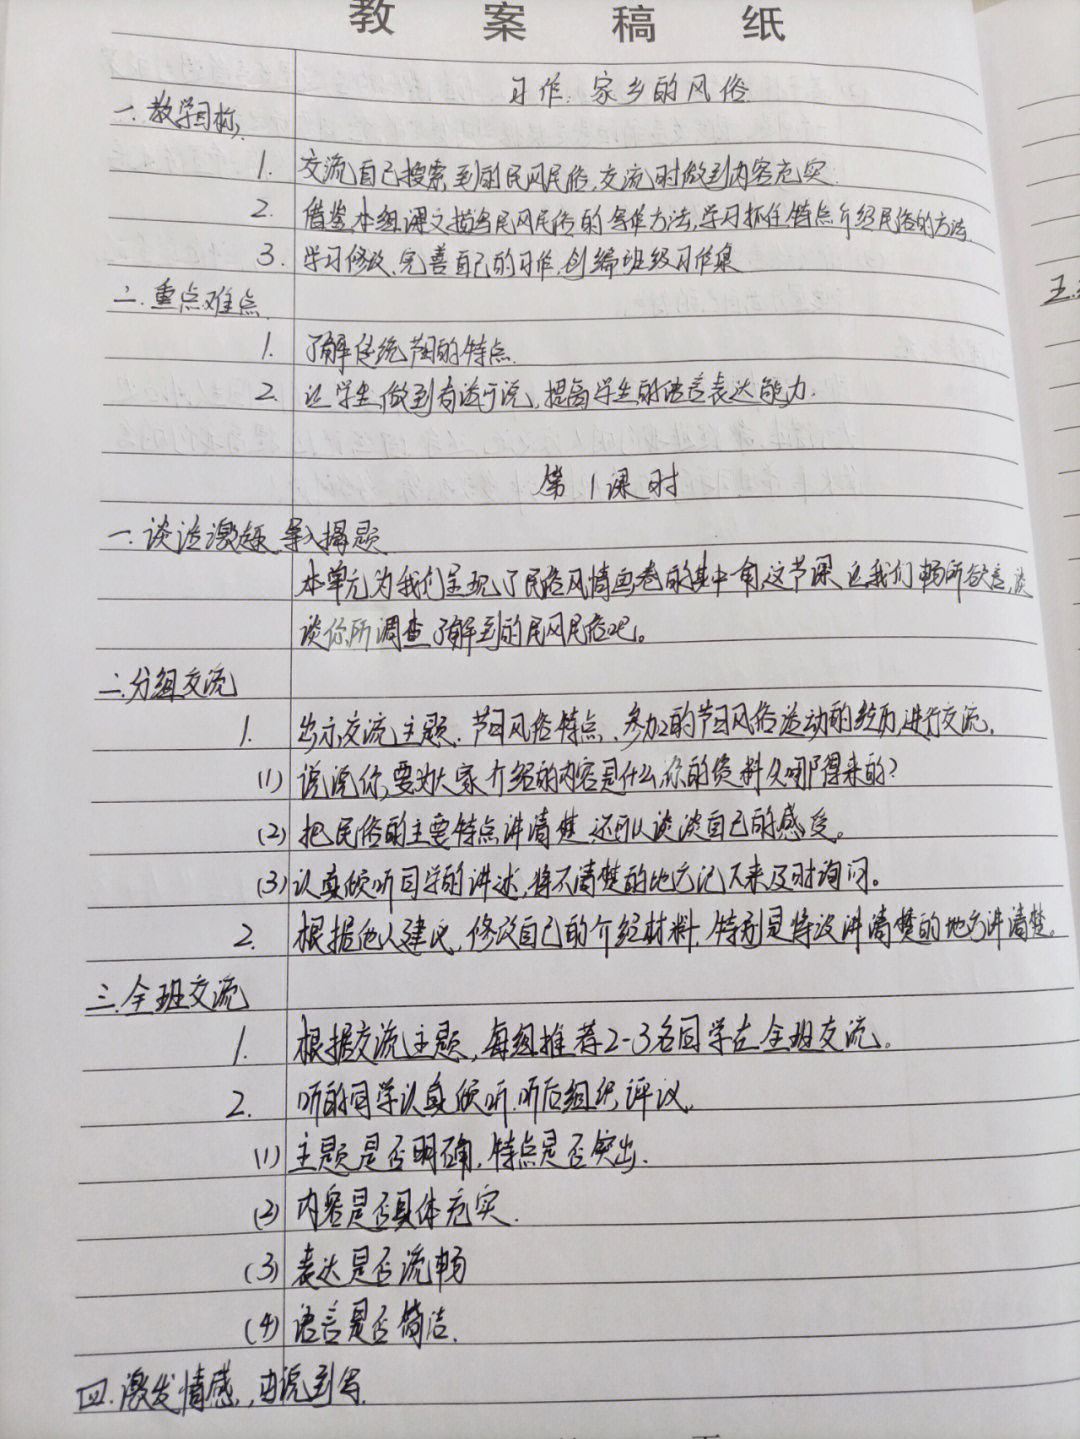 教案稿纸
习作：家乡的风俗
一、教学目标
1. 交流自己搜索到的民风民俗，交流时做到内容充实.
2. 借鉴本组课文描写民风民俗的写作方法，学习抓住特点介绍民俗的方法.
3. 学习修改、完善自己的习作，创编班级习作集
二、重点难点
1. 了解传统节日的特点.
2. 让学生做到有话可说，提高学生的语言表达能力.
第1课时
一、谈话激趣，导入揭题
本单元为我们呈现了民俗风情画卷的其中一角，这节课让我们畅所欲言，谈
谈你所调查了解到的民风民俗吧。
二、分组交流
1. 出示交流主题、节日风俗特点、参加的节日风俗活动的经历，进行交流.
(1) 说说你要为大家介绍的内容是什么，你的资料从哪得来的？
(2) 把民俗的主要特点讲清楚，还可以谈谈自己的感受。
(3) 认真倾听同学的讲述，将不清楚的地方记下来及时询问。
2. 根据他人建议，修改自己的介绍材料，特别是将没讲清楚的地方讲清楚。
三、全班交流
1. 根据交流主题，每组推荐2-3名同学在全班交流。
2. 听的同学认真倾听，听后组织评议。
(1) 主题是否明确，特点是否突出.
(2) 内容是否具体充实.
(3) 表达是否流畅
(4) 语言是否简洁.
四、激发情感，由说到写.